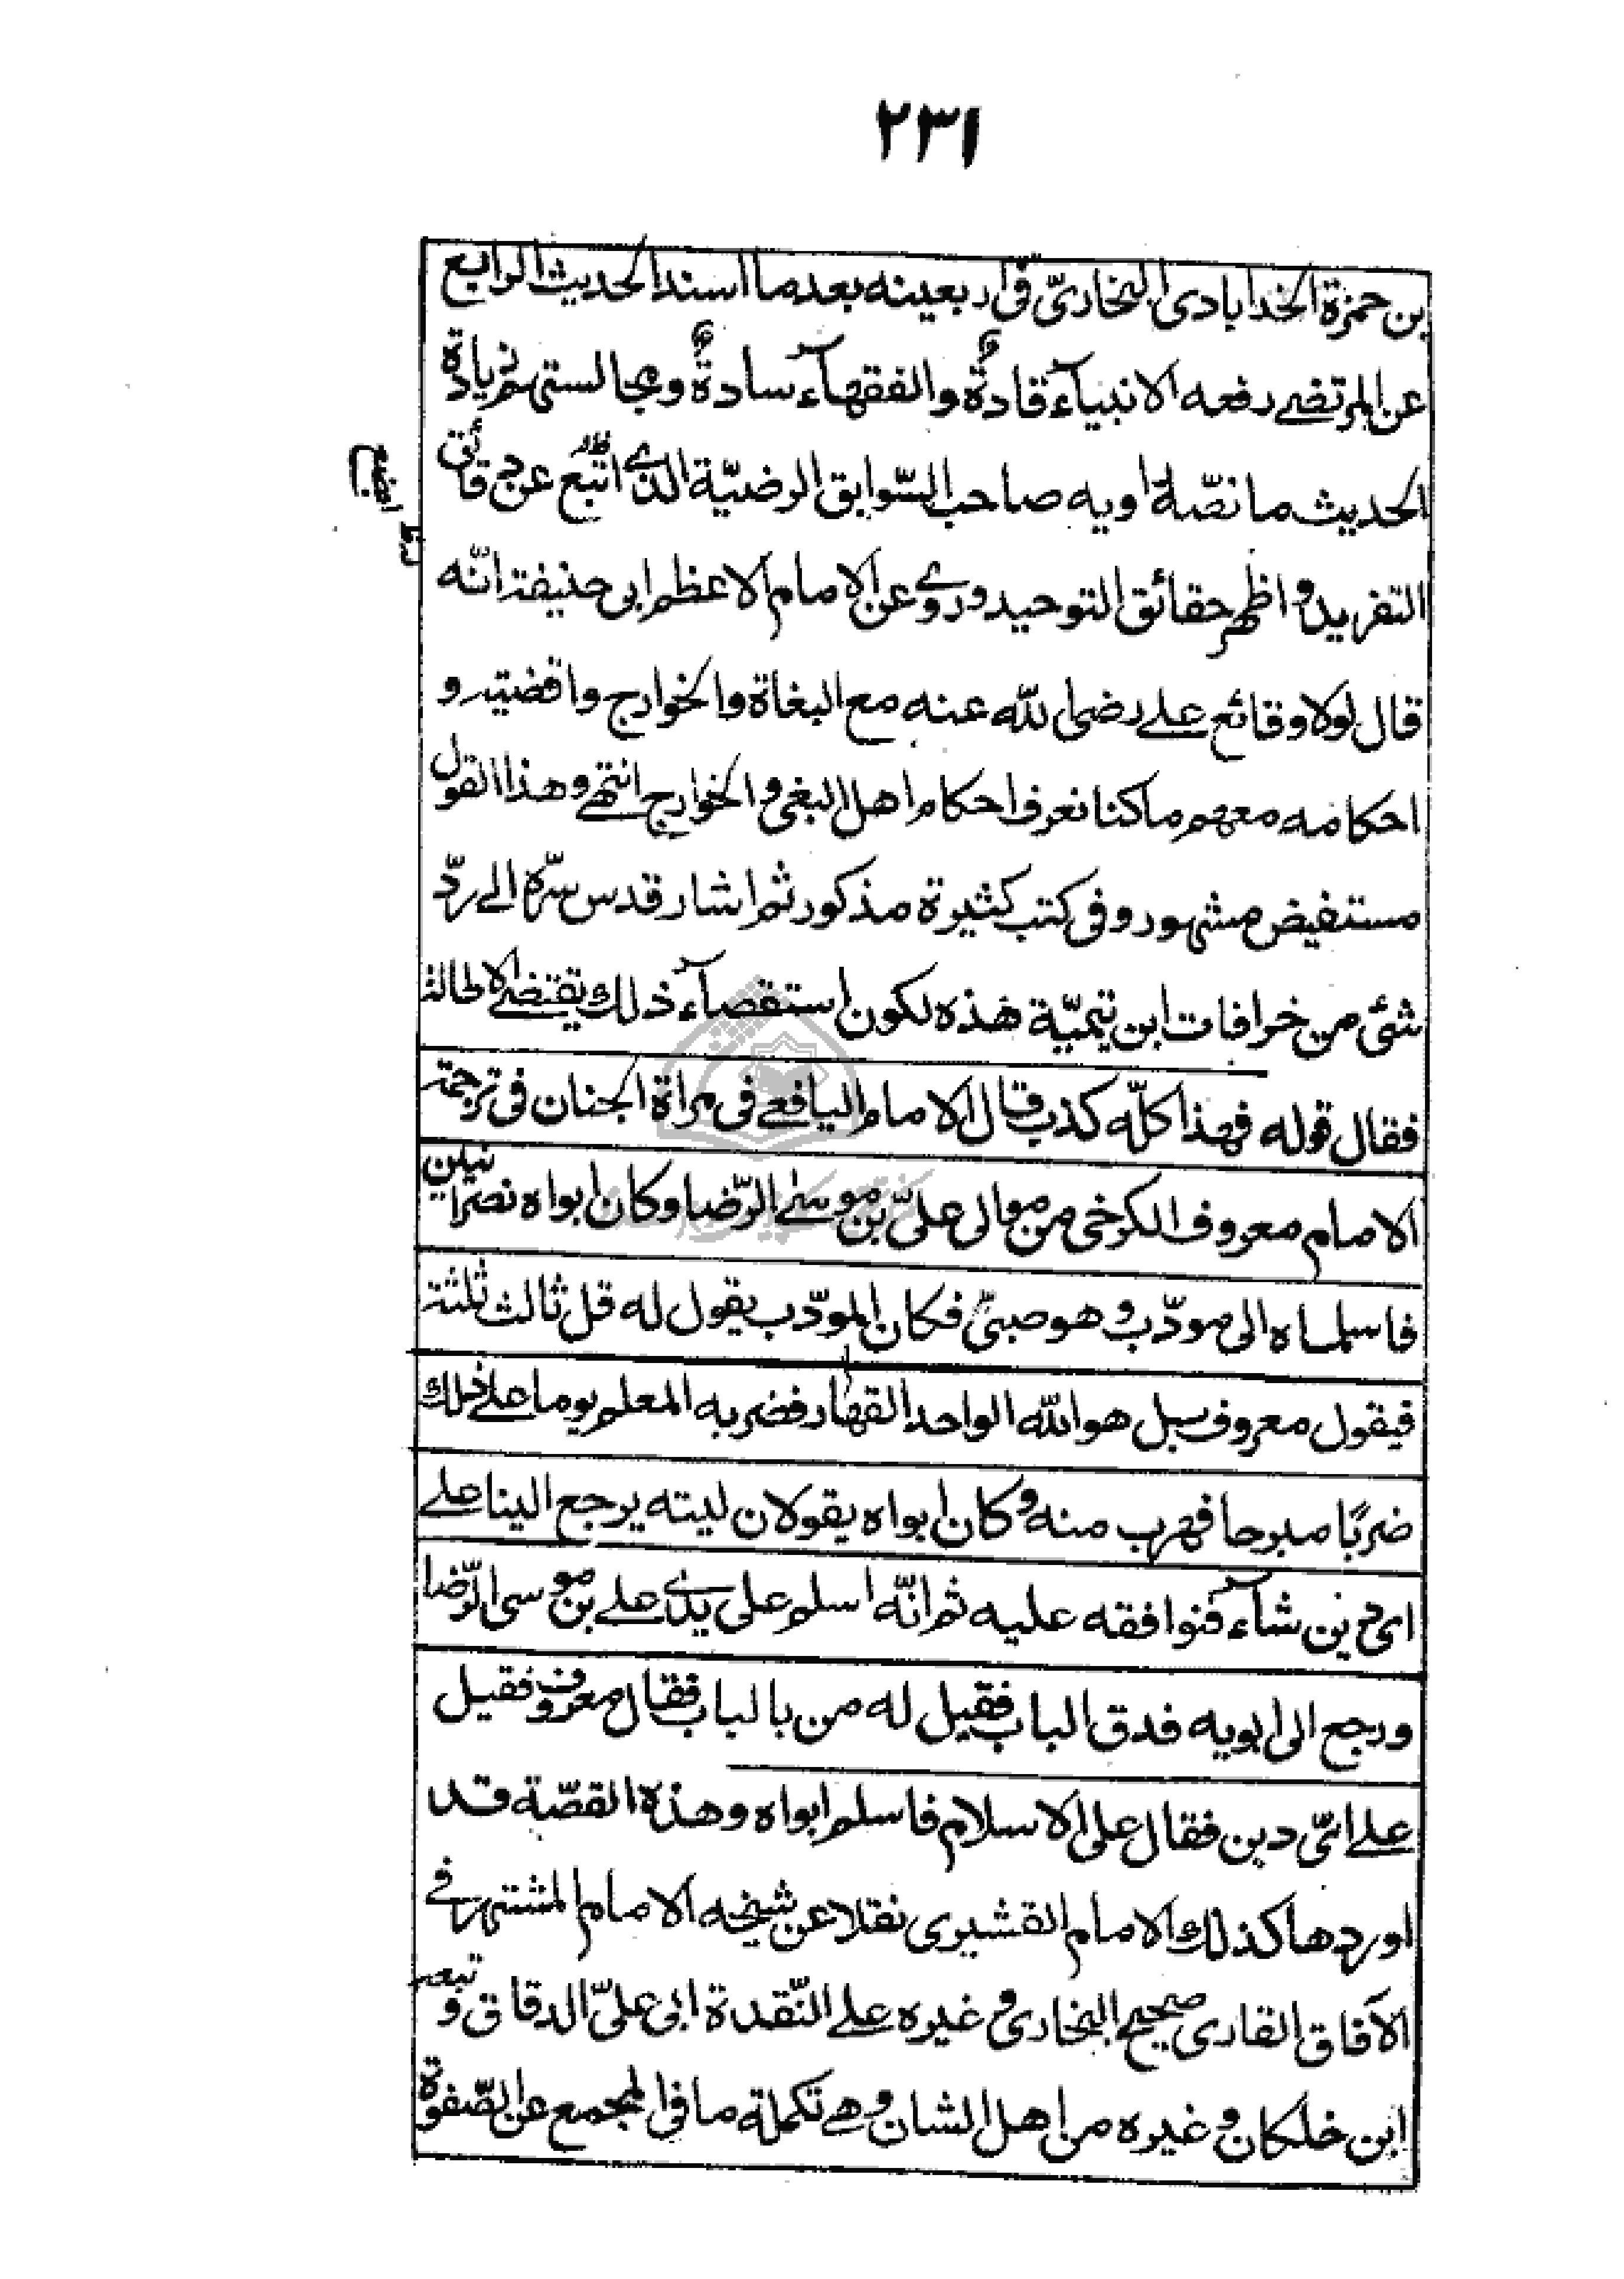 ٢٣١
بن حمزة الخداابادى البخارىّ فى اربعينه بعد ما اسند الحديث الرابع
عن المرتضے رفعه الانبيآء قادةٌ والفقهآء سادةٌ ومجالستهم زيادة
الحديث ما نصّه راويه صاحب السّوابق الرضيّة الذے اتبع عن دقائق
التفريد واظهر حقائق التوحيد وروے عن الامام الاعظم ابى حنيفة انّه
قال لولا وقائع علے رضى الله عنه مع البغاة والخوارج واقضيته و
احكامه معهم ما كنا نعرف احكام اهل البغى والخوارج انتهے وهذا القول
مستفيض مشهور وفى كتب كثيرة مذكور ثم اشار قدس سرّه الے ردّ
شئ من خرافات ابن تيميّة هذه لكون استقصآء ذلك يقتضے الاطالة
فقال قوله فهذا كلّه كذب قال الامام اليافعے فى مراة الجنان فى ترجمة
الامام معروف الكرخى من موالى علىّ بن موسٰے الرّضا وكان ابواه نصرانيين
فاسلماه الى مودّب وهو صبىّ فكان المودّب يقول له قل ثالث ثلثة
فيقول معروف بل هو الله الواحد القهار فضربه المعلم يوما علے ذلك
ضربًا مبرحا فهرب منه وكان ابواه يقولان ليته يرجع الينا علے
اى دين شآء فنوافقه عليه ثم انّه اسلم على يدے علے بن موسى الرّضا
ورجع الى ابويه فدق الباب فقيل له من بالباب فقال معروف فقيل
علے اىّ دين فقال على الاسلام فاسلم ابواه وهذه القصّة قد
اوردها كذلك الامام القشيرى نقلا عن شيخه الامام المشتهر فے
الآفاق القارى صحيح البخارى وغيره علے النّقدة ابى علىّ الدقاق وتبعه
ابن خلكان وغيره من اهل الشان وهے تكملة ما فى المجمع عن الصّفوة